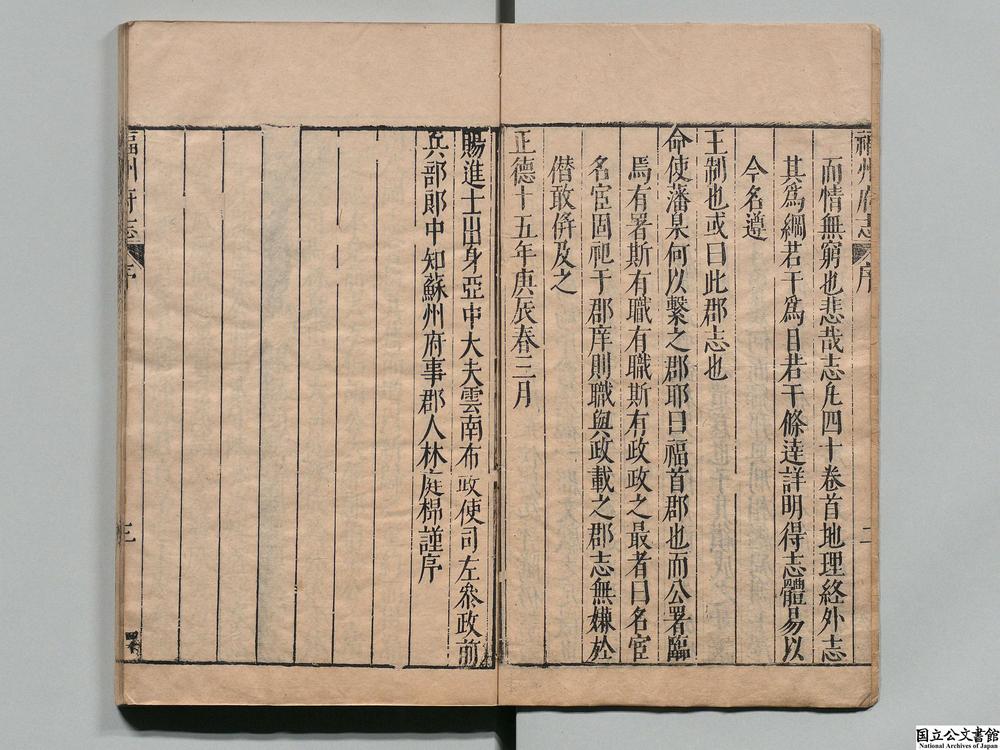 福州府志 序 二
而情無窮也悲哉志凡四十卷首地理終外志
其爲綱若干爲目若干條達詳明得志體易以
今名遵
王制也或曰此郡志也
命使藩臬何以繫之郡耶曰福首郡也而公署臨
焉有署斯有職有職斯有政政之最者曰名宦
名宦固祀于郡庠則職與政載之郡志無嫌於
僣敢併及之
正德十五年庚辰春三月
賜進士出身亞中大夫雲南布政使司左叅政前
兵部郎中知蘇州府事郡人林庭㭿謹序
福州府志 序 三
国立公文書館
National Archives of Japan